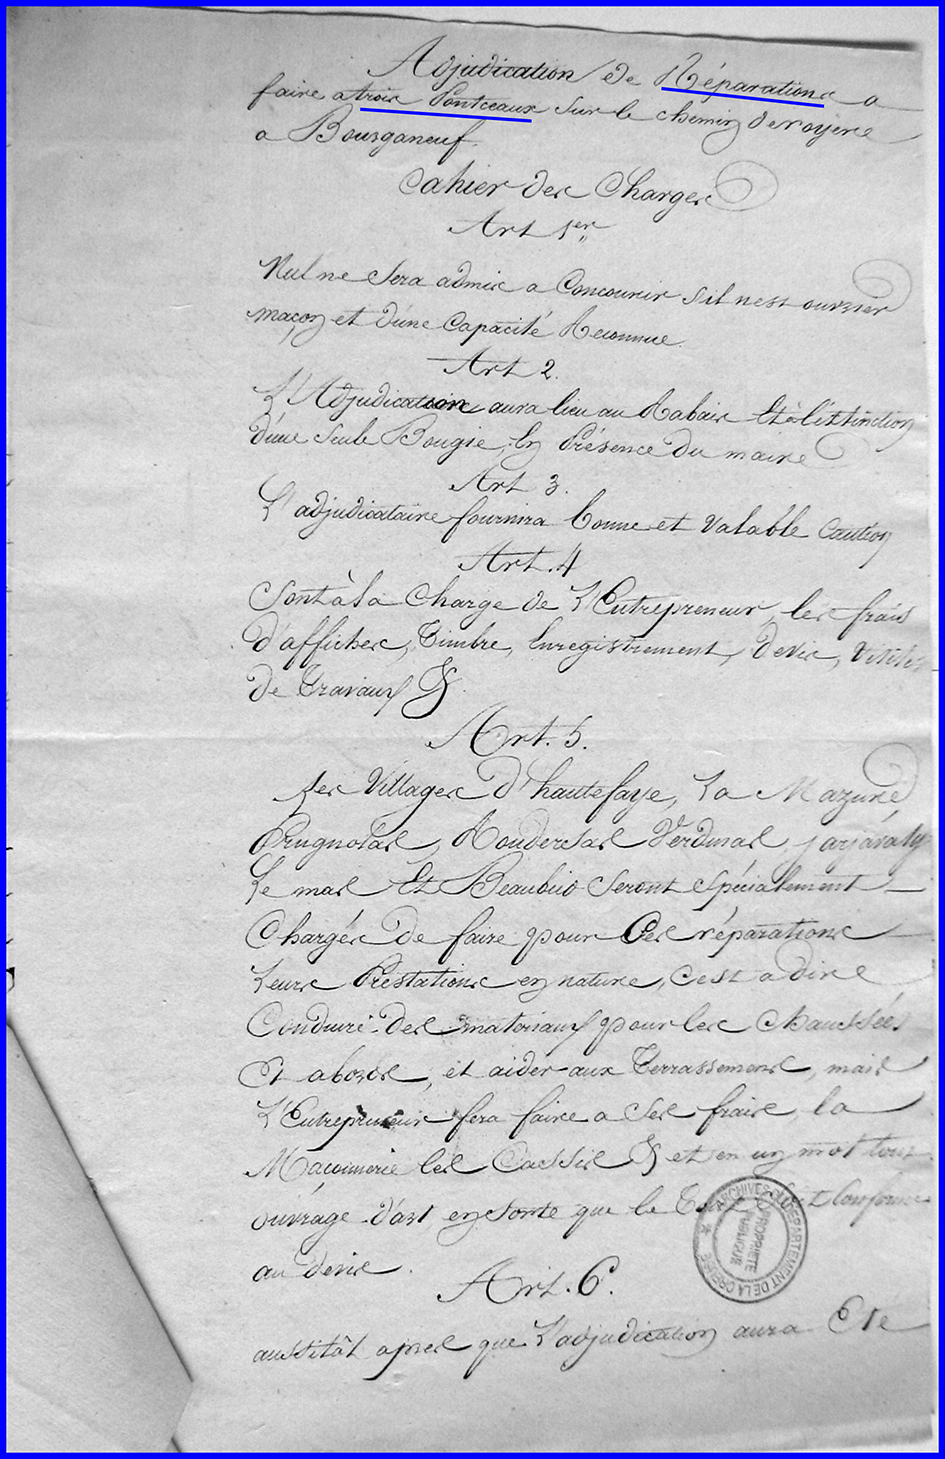 Adjudication de Réparations a
faire a trois Pontceaux sur le chemin de royere
a Bourganeuf.
Cahier des Charges
Art 1er
Nul ne sera admis a Concourir s'il n'est ouvrier
maçon et d'une Capacité Reconnue.
Art 2.
L'Adjudication aura lieu au Rabais Et à l'extinction
d'une seule Bougie, En Présence du maire
Art 3.
L'adjudicataire fournira bonne et valable Caution
Art. 4
Sont à la Charge de L'Entrepreneur, les frais
d'affiches, Timbre, Enregistrement, devis, visites
de Travaux &
Art. 5.
Les Villages d'hautefaye, La Mazure
Prugnolas, Roudersas Verdinas, jarjavaly
Le mas Et Beaubiio seront spécialement
Chargés de faire pour Ces réparations
Leurs Prestations en nature, c'est a dire
Conduire des materiaux pour les Chaussées
Et abords, et aider aux Terrassements, mais
L'Entrepreneur fera faire a ses frais, la
Maçonnerie les Cassis & et en un mot tout
ouvrage d'art en sorte que le soit Conforme
au devis.
ARCHIVES DU DEPARTEMENT DE LA CREUSE
PROPRIETE
PUBLIQUE
Art. 6.
aussitôt apres que L'adjudication aura Eté